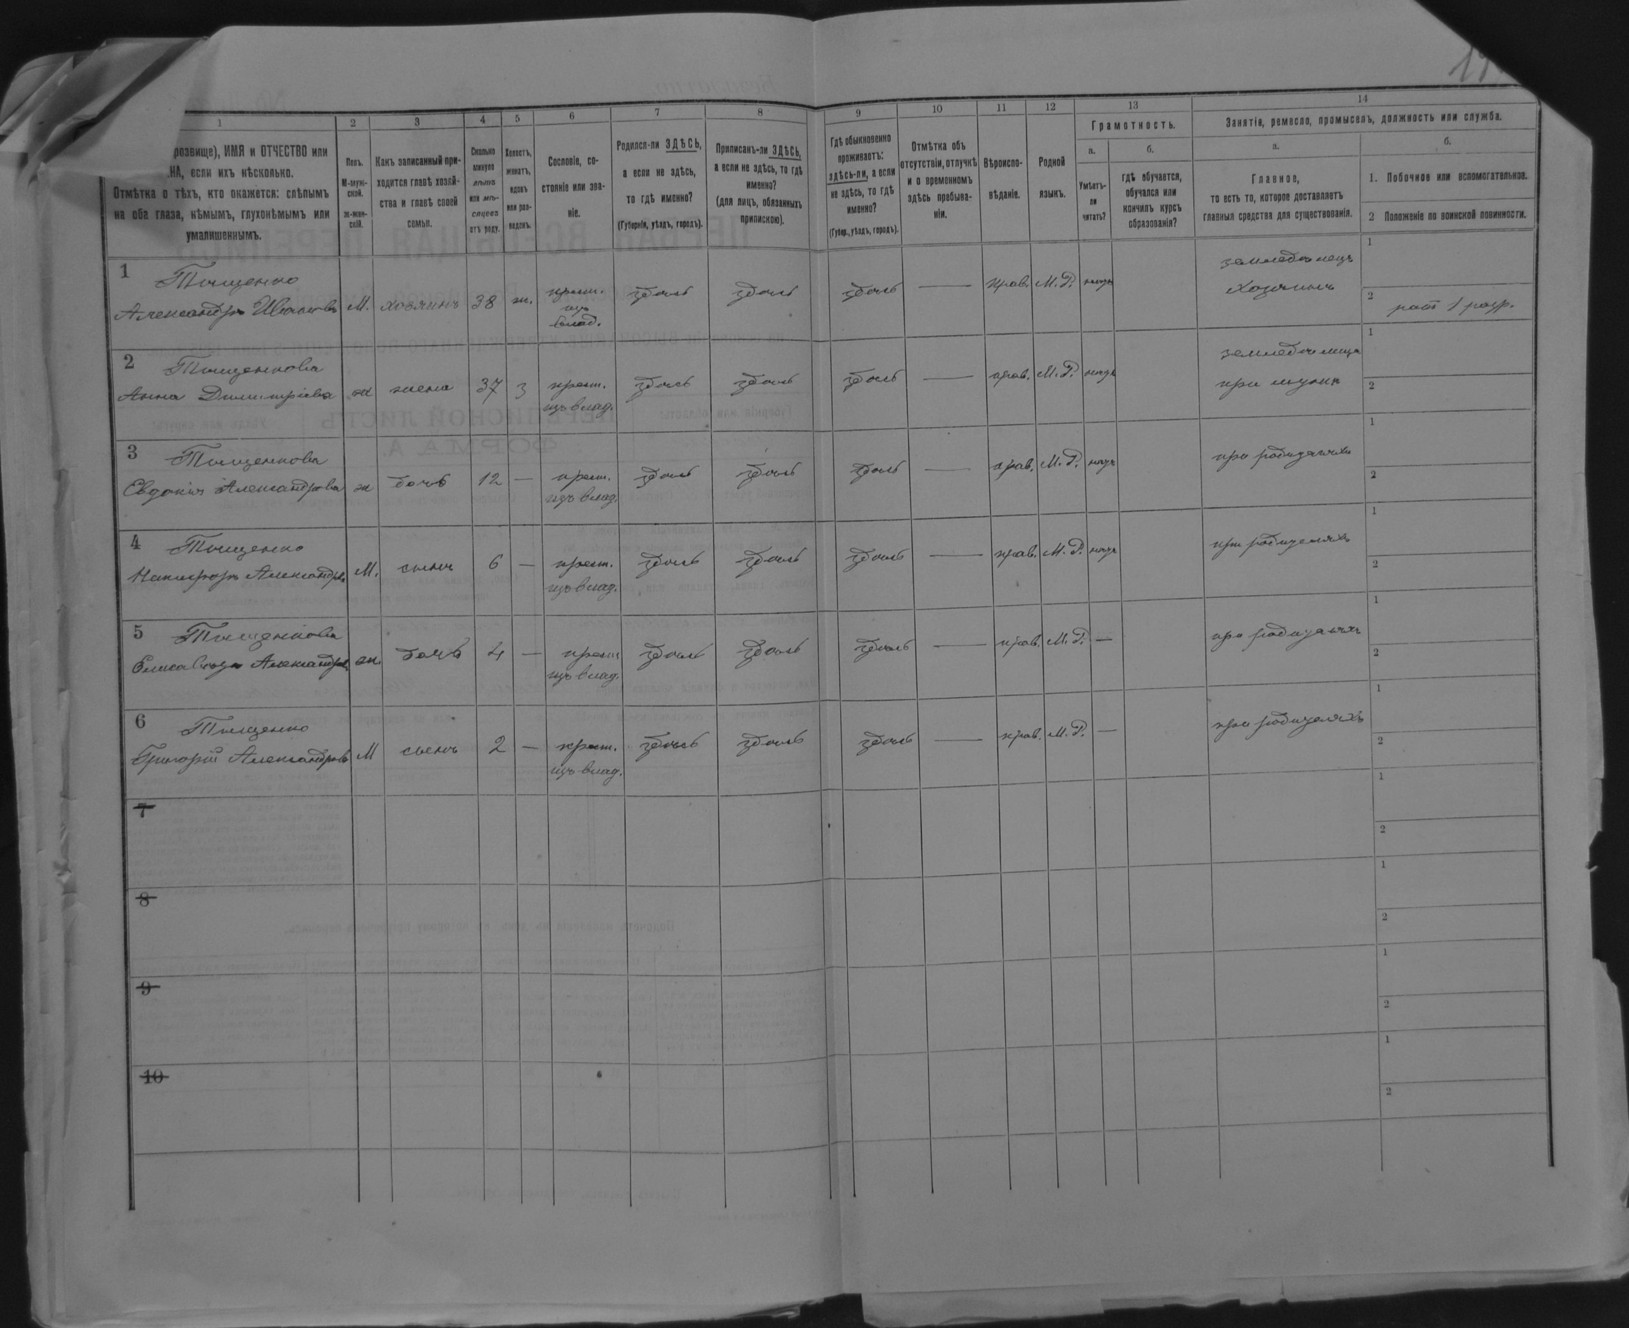 1 2 3 4 5 6 7 8 9 10 11 12 13 14
розвище), ИМЯ и ОТЧЕСТВО или
НА, если ихъ нѣсколько.
Отмѣтка о тѣхъ, кто окажется: слѣпымъ
на оба глаза, нѣмымъ, глухонѣмымъ или
умалишеннымъ.
Полъ.
М-муж-
ской.
ж-жен-
скій.
Какъ записанный при-
ходится главѣ хозяй-
ства и главѣ своей
семьи.
Сколько
минуло
лѣтъ
или мѣ-
сяцевъ
отъ роду.
Холостъ,
женатъ,
вдовъ
или раз-
веденъ.
Сословіе, со-
стояніе или зва-
ніе.
Родился-ли ЗДѢСЬ,
а если не здѣсь,
то гдѣ именно?
(Губернія, уѣздъ, городъ).
Приписанъ-ли ЗДѢСЬ,
а если не здѣсь, то гдѣ
именно?
(для лицъ, обязанныхъ
припискою).
Гдѣ обыкновенно
проживаетъ:
здѣсь-ли, а если
не здѣсь, то гдѣ
именно?
(Губер., уѣздъ, городъ).
Отмѣтка объ
отсутствіи, отлучкѣ
и о временномъ
здѣсь пребыва-
ніи.
Вѣроиспо-
вѣданіе.
Родной
языкъ.
Грамотность.
а.
Умѣетъ-
ли
читать?
б.
гдѣ обучается,
обучался или
кончилъ курсъ
образованія?
Занятія, ремесло, промыселъ, должность или служба.
а.
Главное,
то есть то, которое доставляетъ
главныя средства для существованія.
б.
1. Побочное или вспомогательное.
2 Положеніе по воинской повинности.
1 Тыщенко
Александръ Ивановъ М. хозяинъ 38 ж. крест. изъ влад. здѣсь здѣсь здѣсь — прав. М. Р. нѣтъ земледѣлецъ хозяинъ 1
2 рат 1 разр.
2 Тыщенкова
Анна Димитріева ж жена 37 з крест. изъ влад. здѣсь здѣсь здѣсь — прав. М. Р. нѣтъ при мужѣ 1
2
3 Тыщенкова
Евдокія Александрова ж дочь 12 — крест. изъ влад. здѣсь здѣсь здѣсь — прав. М. Р. нѣтъ при родителяхъ 1
2
4 Тыщенко
Никифоръ Александровъ М. сынъ 6 — крест. изъ влад. здѣсь здѣсь здѣсь — прав. М. Р. нѣтъ при родителяхъ 1
2
5 Тыщенкова
Елисавета Александрова ж дочь 4 — крест изъ влад. здѣсь здѣсь здѣсь — прав. М. Р. — при родителяхъ 1
2
6 Тыщенко
Григорій Александровъ М сынъ 2 — крест. изъ влад. здѣсь здѣсь здѣсь — прав. М. Р. — при родителяхъ 1
2
7 1
2
8 1
2
9 1
2
10 1
2